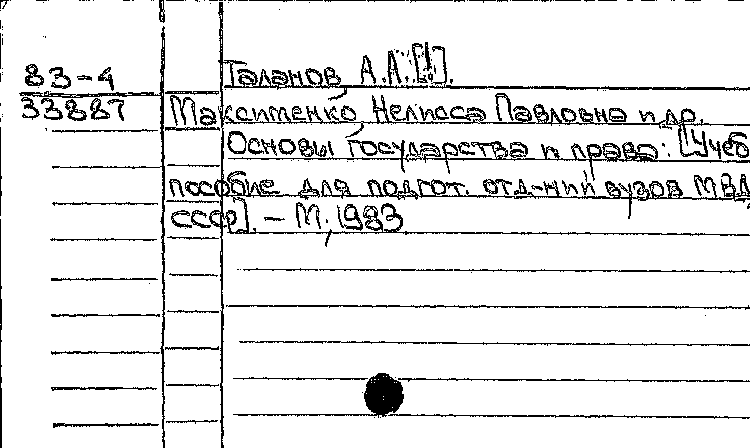 83-4 Таланов А.А. [!].
33887 Максименко Нелиоса Павловна и др.
Основы государства и права: [Учеб
пособие для подгот. отд-ний вузов МВД
СССР]. – М., 1983